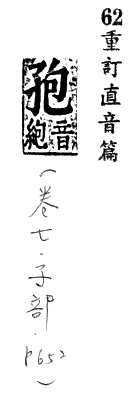 62重訂直音篇
孢
音絕
(卷七.子部.p652)